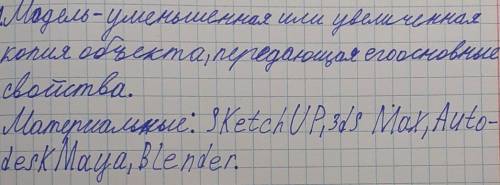 Модель-уменьшенная или увеличенная
копия объекта, передающая его основные
свойства.
Материальные: SKetchUP, 3ds Max, Auto-
desK Maya, Blender.